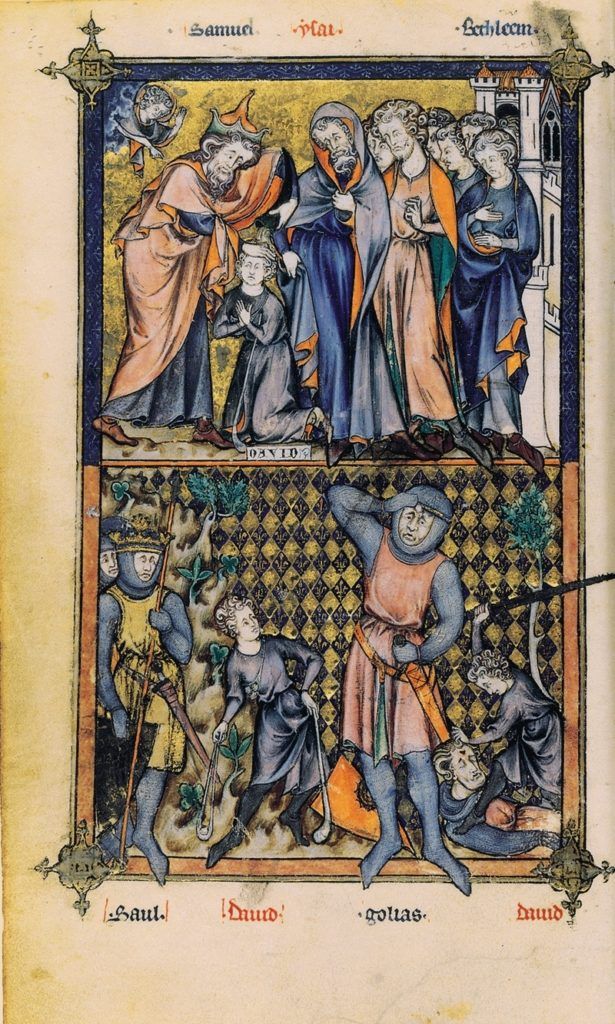 Samuel ·ysai· ·Bethleem·
DAVID
·Saul· ·dauid· ·golias· dauid